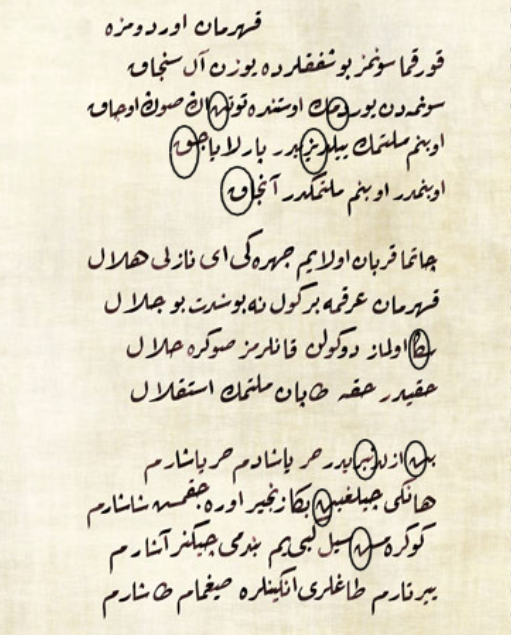 قهرمان اوردومزه
قورقما سونمز بو شفقلرده يوزن آل سنجاق
سونمه‌دن يوردمك اوستنده توتن اك صوك اوجاق
او بنم ملتمك ييلديزيدر پارلاياجق
او بنمدر او بنم ملتمكدر آنجاق
چاتما قربان اولايم چهره‌كى اى نازلى هلال
قهرمان عرقمه بر گول نه بو شدت بو جلال
سكا اولماز دوكولن قانلرمز صوكره حلال
حقيدر حقه طاپان ملتمك استقلال
بن ازلدنبريدر حر ياشادم حر ياشارم
هانكى چيلغين بكا زنجير اوره‌جقمش شاشارم
كوكره‌مش سيل كبى‌يم بندمى چيكنر آشارم
ييرتارم طاغلرى انگينلره صيغمام طاشارم